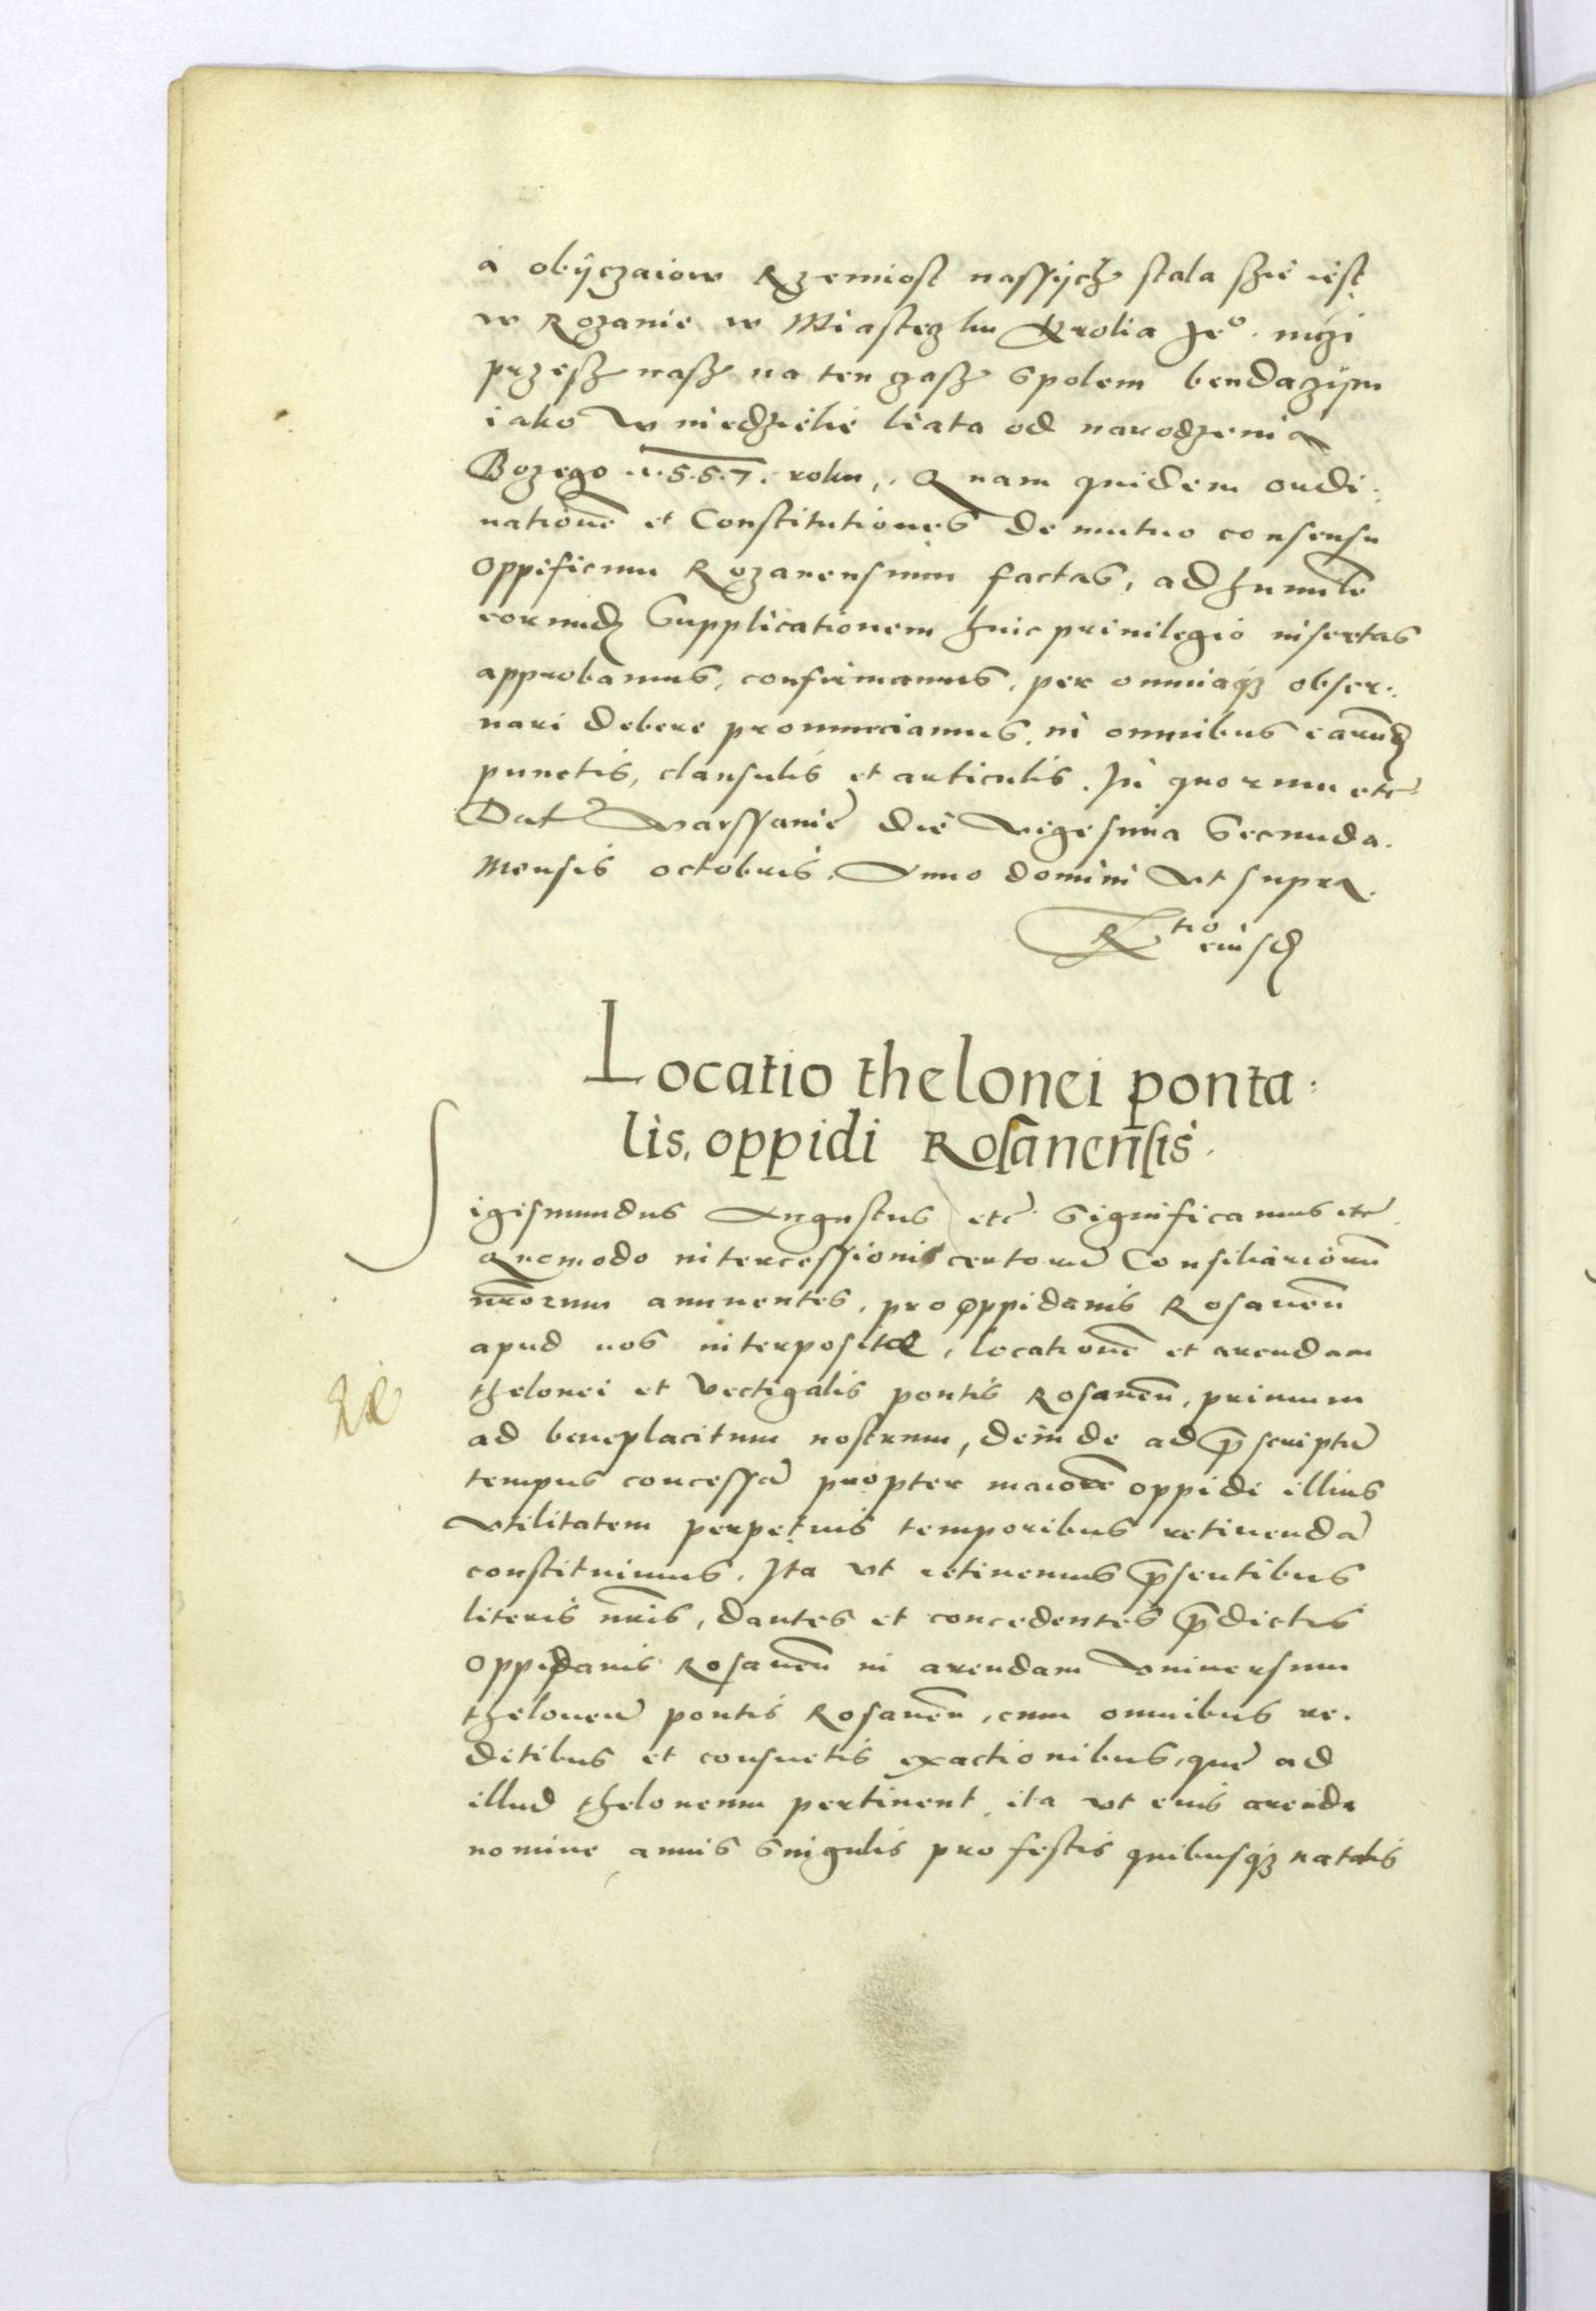 a obÿczaiow Rzemiosl nassÿch stala szie iest
w Rozanie w Miasteczku Krolia Jeº. mczi
przesz nasz na ten czasz spolem bendaczÿm
iako w niedzielie liata od narodzenia
Bozego .1.5.5.7. roku,. Quam quidem ordi:
nationē et Constitutiones de mutuo consensu
oppificum Rozanensium factas, ad humilē
eorundē Supplicationem huic priuilegio insertas
approbamus, confirmamus, per omniaqʒ obser:
uari debere pronunciamus. in omnibus earundē
punctis, clausulis et articulis. In quorum etc̄
Dat̄ Warssauie die Vigesima Secunda.
Mensis octobris. Anno domini Vt supra.
Rtio eiusdē
Locatio thelonei ponta:
lis, oppidi Rosanensis.
Sigismundus Augustus etc̄ Significamus etc̄.
Quomodo intercessioni certorū Consiliariorū
nr̄orum annuentes, pro oppidanis Rosaneñ
apud nos interpositæ, locationē et arendam
thelonei et Vectigalis pontis Rosaneñ, primum
ad beneplacitum nostrum, deinde ad p̄scriptū
tempus concessā propter maiorē oppidi illius
Vtilitatem perpetuis temporibus retinendā
constituimus. Ita vt retinemus p̄sentibus
literis nr̄is, dantes et concedentes p̄dictis
oppidanis Rosaneñ in arendam Vniuersum
theloneū pontis Rosaneñ, cum omnibus re.
ditibus et consuetis exactionibus, que ad
illud theloneum pertinent, ita vt eius arende
nomine annis Singulis pro festis quibusqʒ natalis